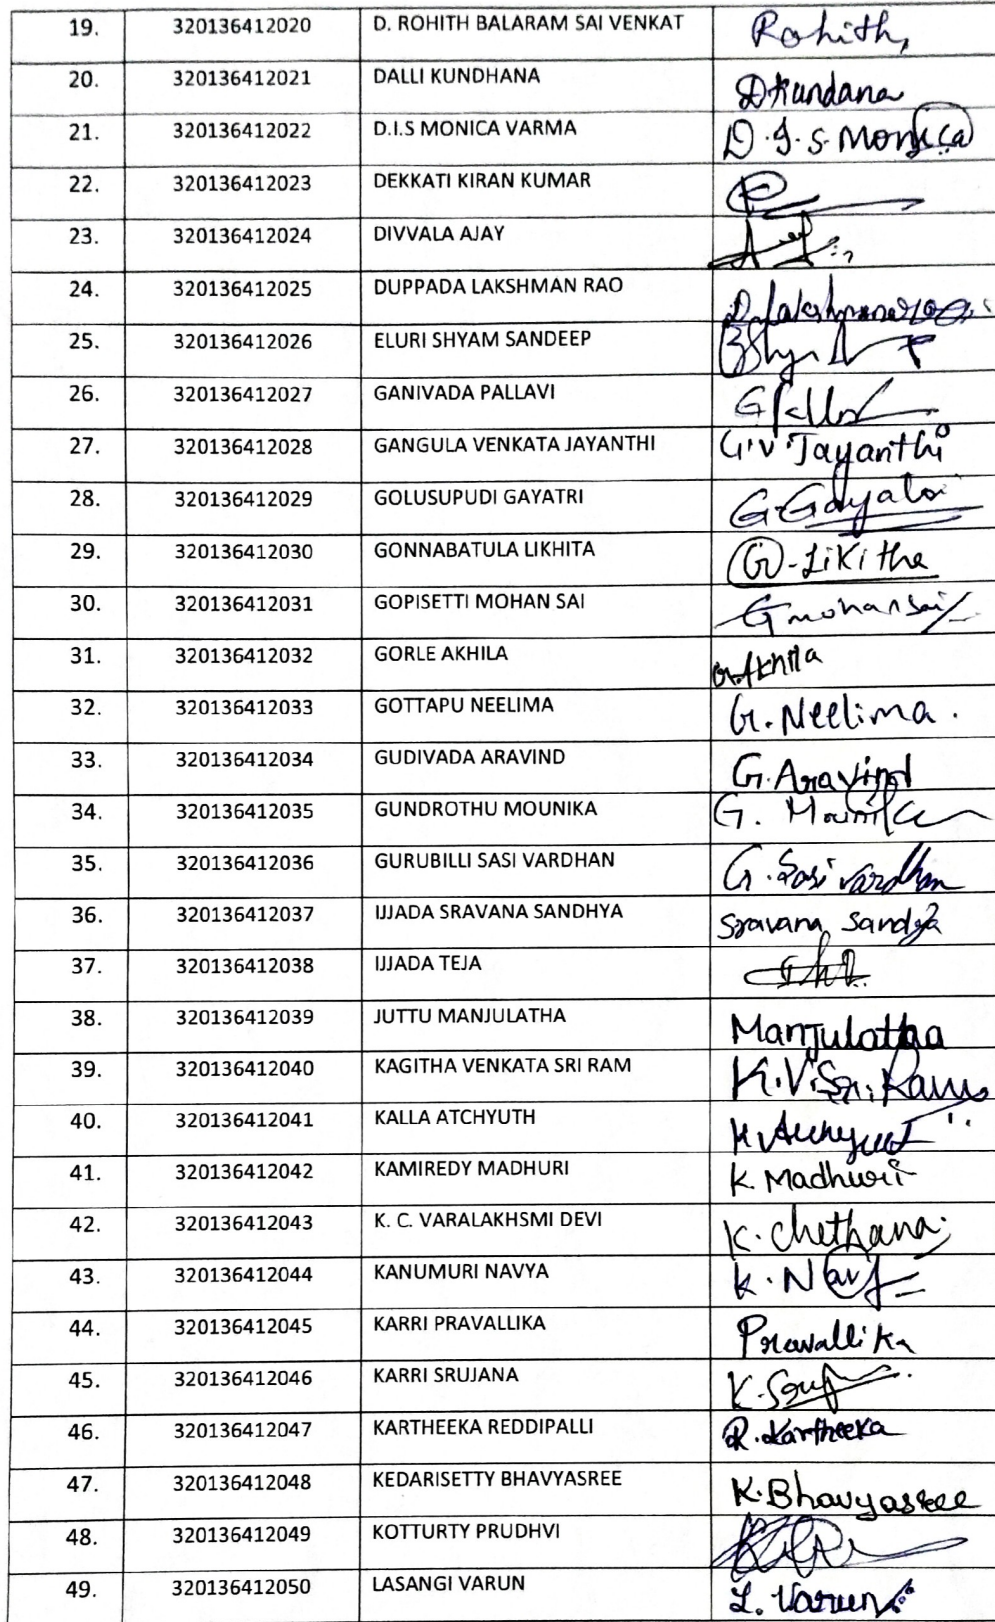 19. 320136412020 D. ROHITH BALARAM SAI VENKAT Rohith,
20. 320136412021 DALLI KUNDHANA D Kundana
21. 320136412022 D.I.S MONICA VARMA D.I.S. Monica
22. 320136412023 DEKKATI KIRAN KUMAR
23. 320136412024 DIVVALA AJAY
24. 320136412025 DUPPADA LAKSHMAN RAO D. Lakshmanarao
25. 320136412026 ELURI SHYAM SANDEEP
26. 320136412027 GANIVADA PALLAVI
27. 320136412028 GANGULA VENKATA JAYANTHI G.V.Jayanthi
28. 320136412029 GOLUSUPUDI GAYATRI G.Gayatri
29. 320136412030 GONNABATULA LIKHITA G.LiKitha
30. 320136412031 GOPISETTI MOHAN SAI G mohan sai
31. 320136412032 GORLE AKHILA G.Akhila
32. 320136412033 GOTTAPU NEELIMA G. Neelima.
33. 320136412034 GUDIVADA ARAVIND G.Aravind
34. 320136412035 GUNDROTHU MOUNIKA G. Mounika
35. 320136412036 GURUBILLI SASI VARDHAN G. Sasi vardhan
36. 320136412037 IJJADA SRAVANA SANDHYA Sravana Sandya
37. 320136412038 IJJADA TEJA
38. 320136412039 JUTTU MANJULATHA Manjulatha
39. 320136412040 KAGITHA VENKATA SRI RAM K.V.Sri.Ram
40. 320136412041 KALLA ATCHYUTH K. Atchyut
41. 320136412042 KAMIREDY MADHURI K. Madhuri
42. 320136412043 K. C. VARALAKHSMI DEVI K. Chethana
43. 320136412044 KANUMURI NAVYA K. Navy
44. 320136412045 KARRI PRAVALLIKA Pravallika
45. 320136412046 KARRI SRUJANA
46. 320136412047 KARTHEEKA REDDIPALLI R. Kartheeka
47. 320136412048 KEDARISETTY BHAVYASREE K.Bhavyasree
48. 320136412049 KOTTURTY PRUDHVI
49. 320136412050 LASANGI VARUN L. Varun